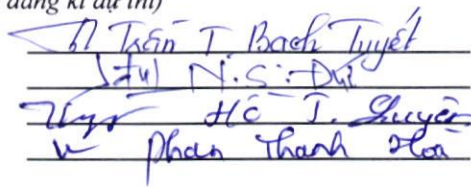 đăng kí dự thi)
Trần T Bạch Tuyết
N.S.Dul
Hồ T. Luyến
Phan Thanh Hoà